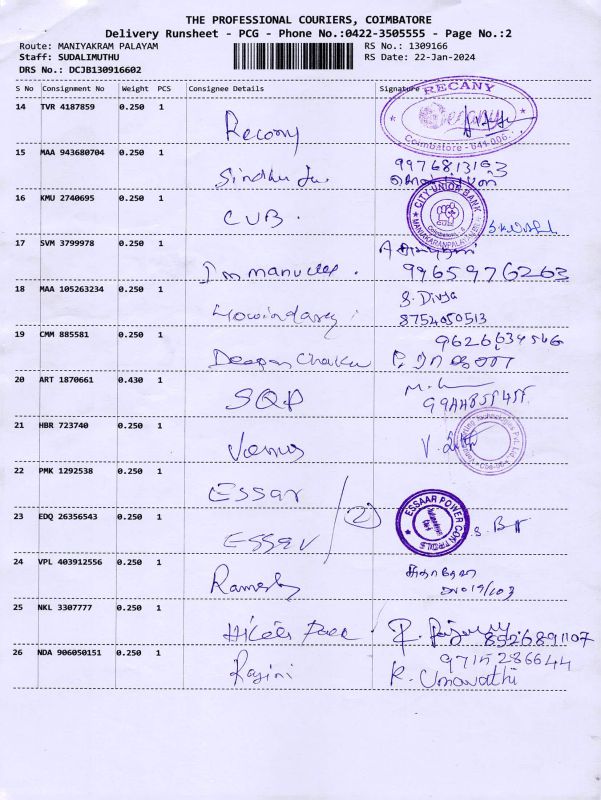 THE PROFESSIONAL COURIERS, COIMBATORE
Delivery Runsheet - PCG - Phone No.:0422-3505555 - Page No.:2
Route: MANIYAKRAM PALAYAM RS No.: 1309166
Staff: SUDALIMUTHU RS Date: 22-Jan-2024
DRS No.: DCJB130916602
S No Consignment No Weight PCS Consignee Details Signature
14 TVR 4187859 0.250 1 Recany RECANY Coimbatore - 641 006.
15 MAA 943680704 0.250 1 Sindhu 9976813193
16 KMU 2740695 0.250 1 CUB. CITY UNION BANK
17 SVM 3799978 0.250 1 Immanuel. 9965976263
18 MAA 105263234 0.250 1 S. Divya
8754050513
19 CMM 885581 0.250 1 Deepan Chakra
20 ART 1870661 0.430 1 SQP
21 HBR 723740 0.250 1 Venus V.
22 PMK 1292538 0.250 1 ESSar
23 EDQ 26356543 0.250 1 ESSar (2) ESSAAR POWER CONTROLS
24 VPL 403912556 0.250 1 Ramesh
25 NKL 3307777 0.250 1 8526891107
26 NDA 906050151 0.250 1 Ragini 9715286644
R. Umavathi